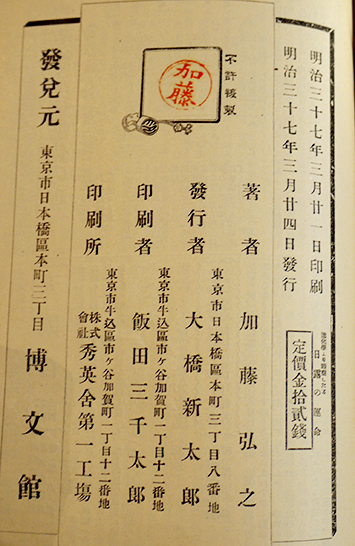 明治三十七年三月廿一日印刷
明治三十七年三月廿四日發行
進化學より觀察したる
日露の運命
定價金拾貳錢
不許複製
加藤
著者 加藤弘之
東京市日本橋區本町三丁目八番地
發行者 大橋新太郎
東京市牛込區市ヶ谷加賀町一丁目十二番地
印刷者 飯田三千太郎
東京市牛込區市ヶ谷加賀町一丁目十二番地
印刷所 株式會社 秀英舍第一工場
發兌元 東京市日本橋區本町三丁目 博文館